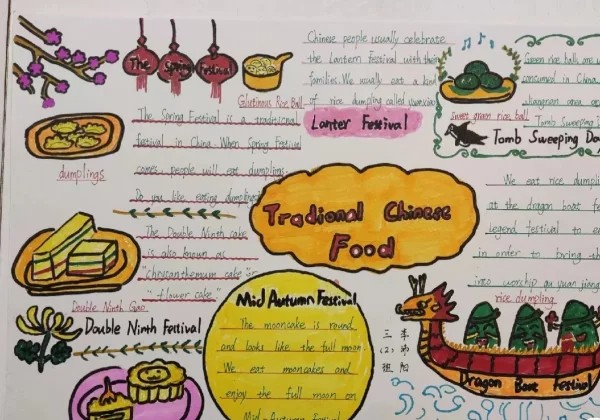 The Spring Festival
The Spring Festival is a traditional
festival in China. When Spring Festival
comes, people will eat dumplings.
Do you like eating dumplings
dumplings
Glutinous Rice Ball
Chinese people usually celebrate
the Lantern Festival with their
families. We usually eat a kind
of rice dumping called
Lanter Festival
sweet green rice ball
Green rice ball are
consumed in China
Jiangnan area
Tomb Sweeping
Tomb Sweeping Da
Tradional Chinese
Food
We eat rice dumpli
at the dragon boat fe
legend festival to e
in order to bring
into worship qu yuan jiang
rice dumpling
Dragon Boat Festival
The Double Ninth cake
is also known as
"chrysanthemum cake" or
"flower cake"
Double Ninth Gao
Double Ninth Festival
Mid Autumn Festival
The mooncake is round
and looks like the full moon
We eat mooncakes and
enjoy the full moon on
Mid-Autumn
三(2)班
李